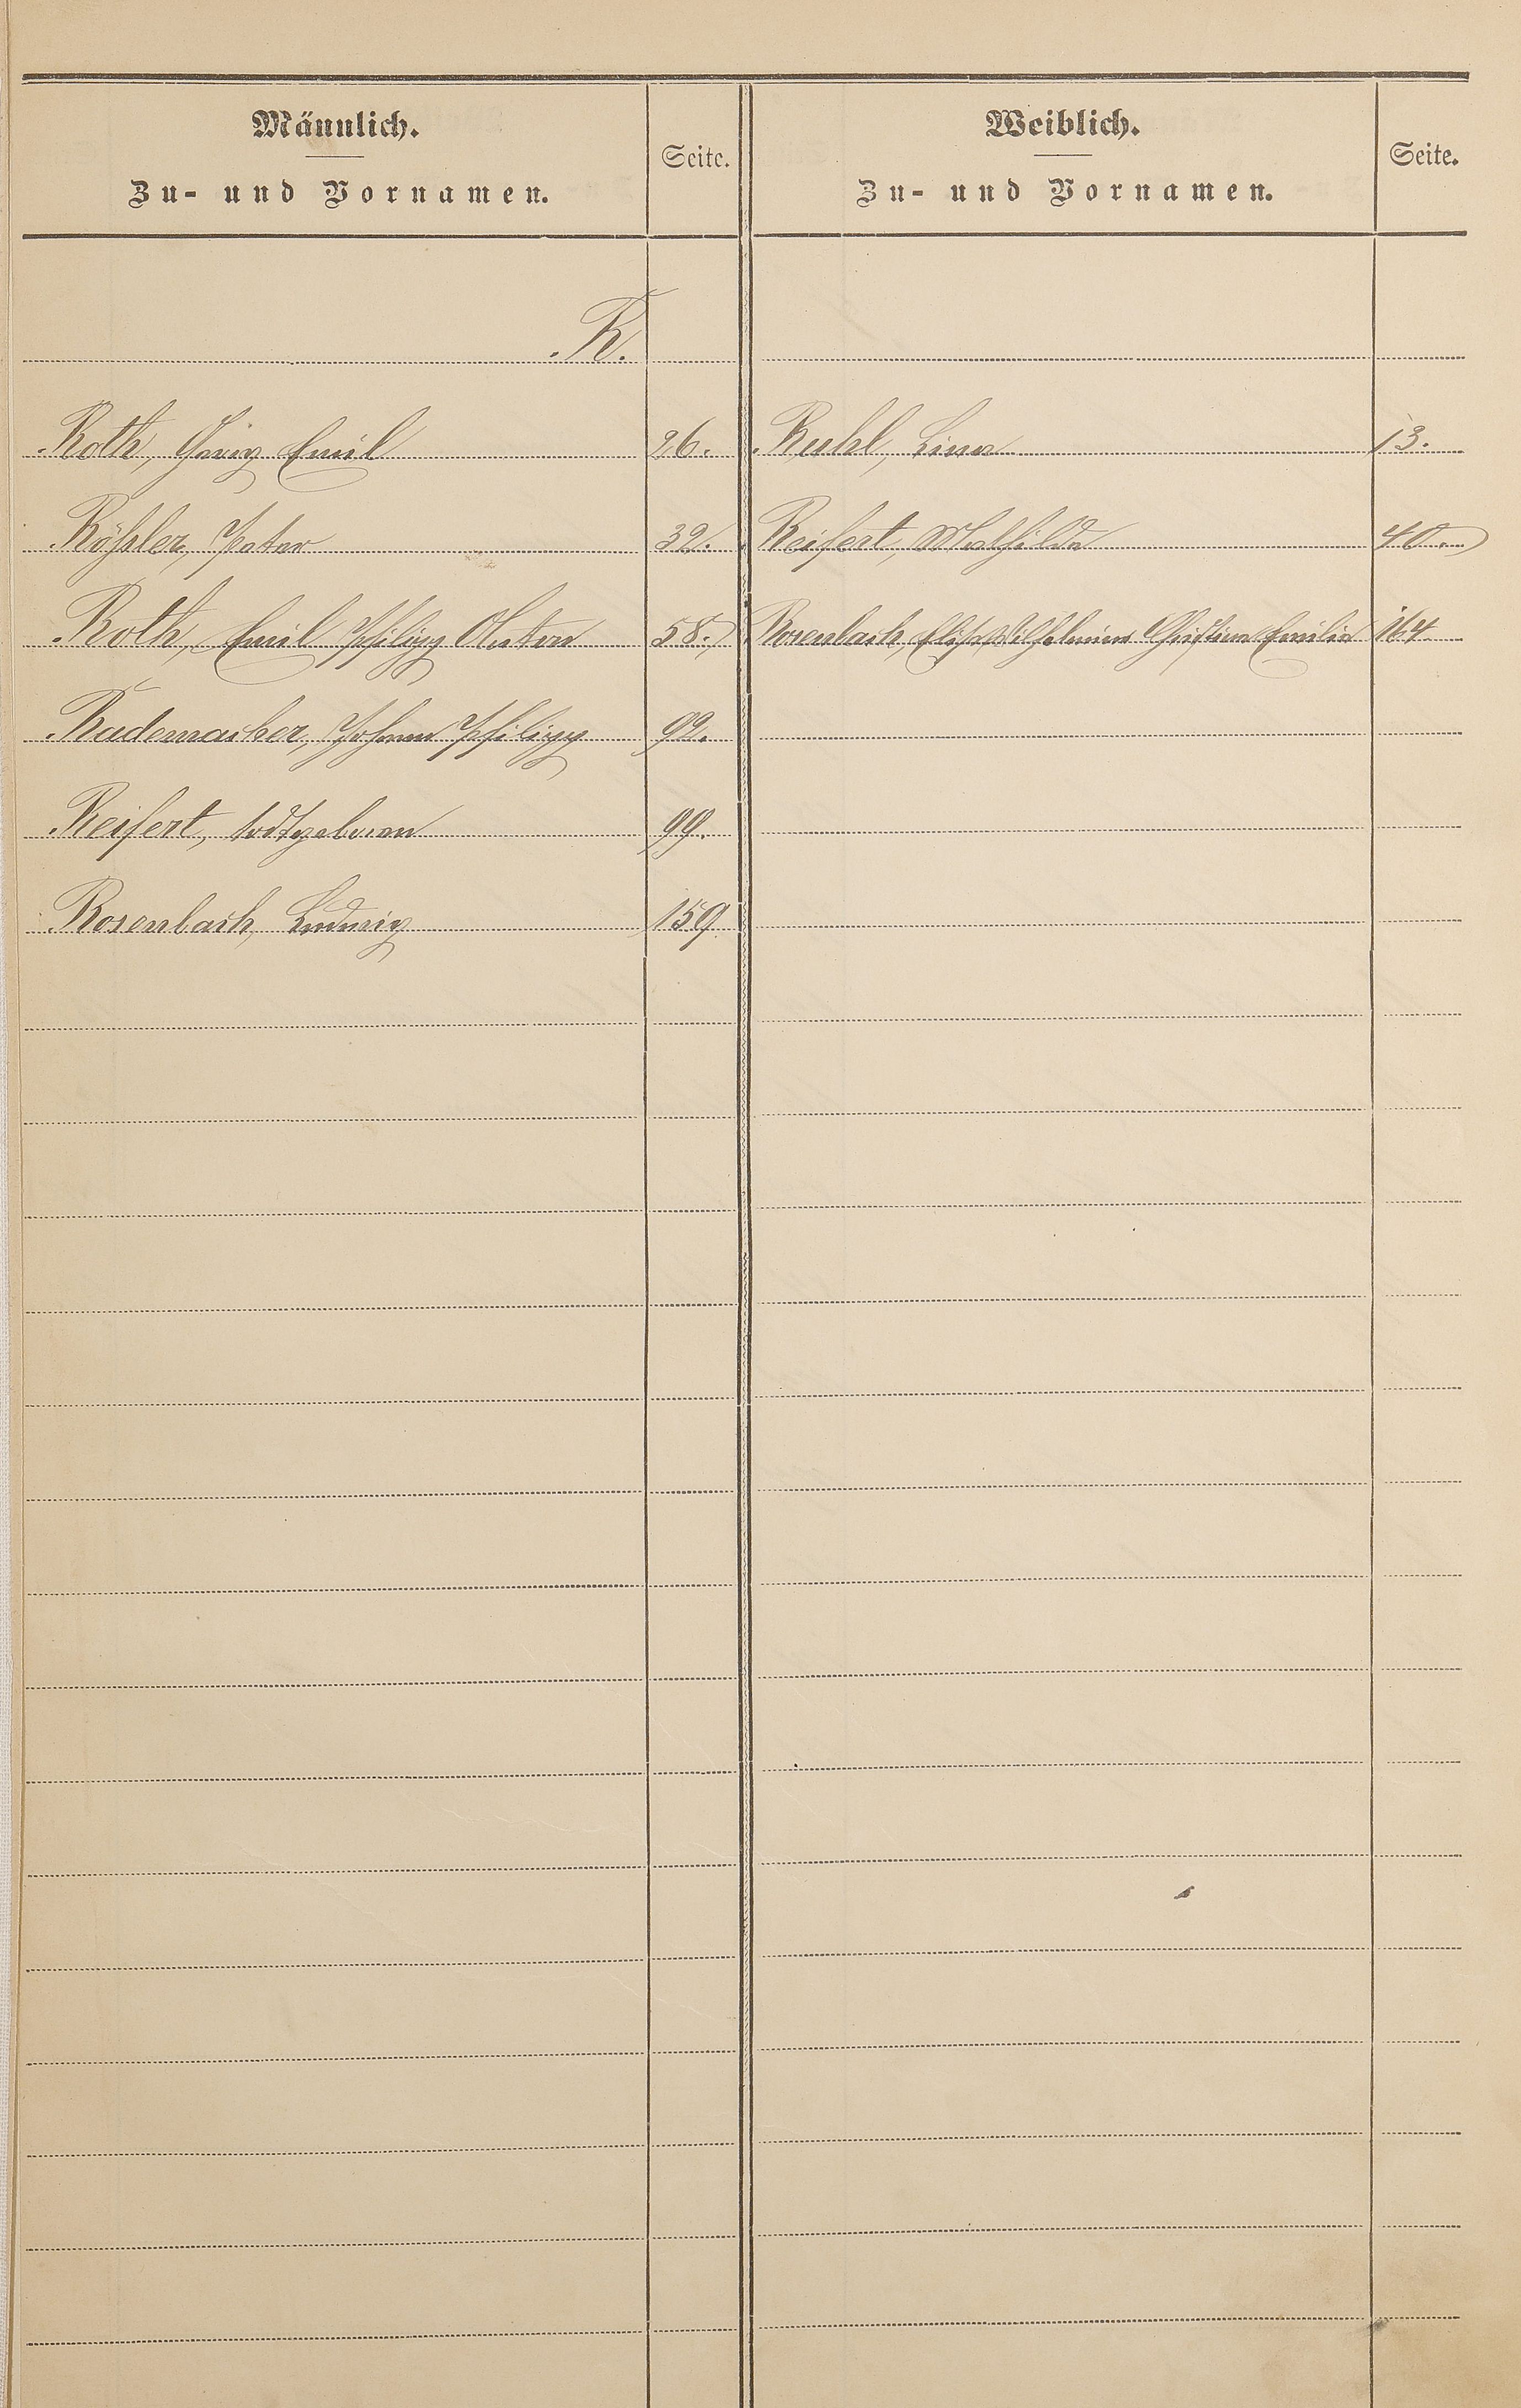 Männlich.
Zu- und Vornamen.
Seite.
Weiblich.
Zu- und Vornamen.
Seite.
R.
Roth, Georg Emil 26.
Rößler, Peter 32.
Roth, Emil Philipp Anton 58.
Rademacher, Johann Philipp 92.
Reifert, todtgeboren 99.
Rosenbach, Ludwig 159
Ruhl, Lina 13.
Reifert, Mathilde 40.
Rosenbach, Wilhelmine Christine Emilie 164